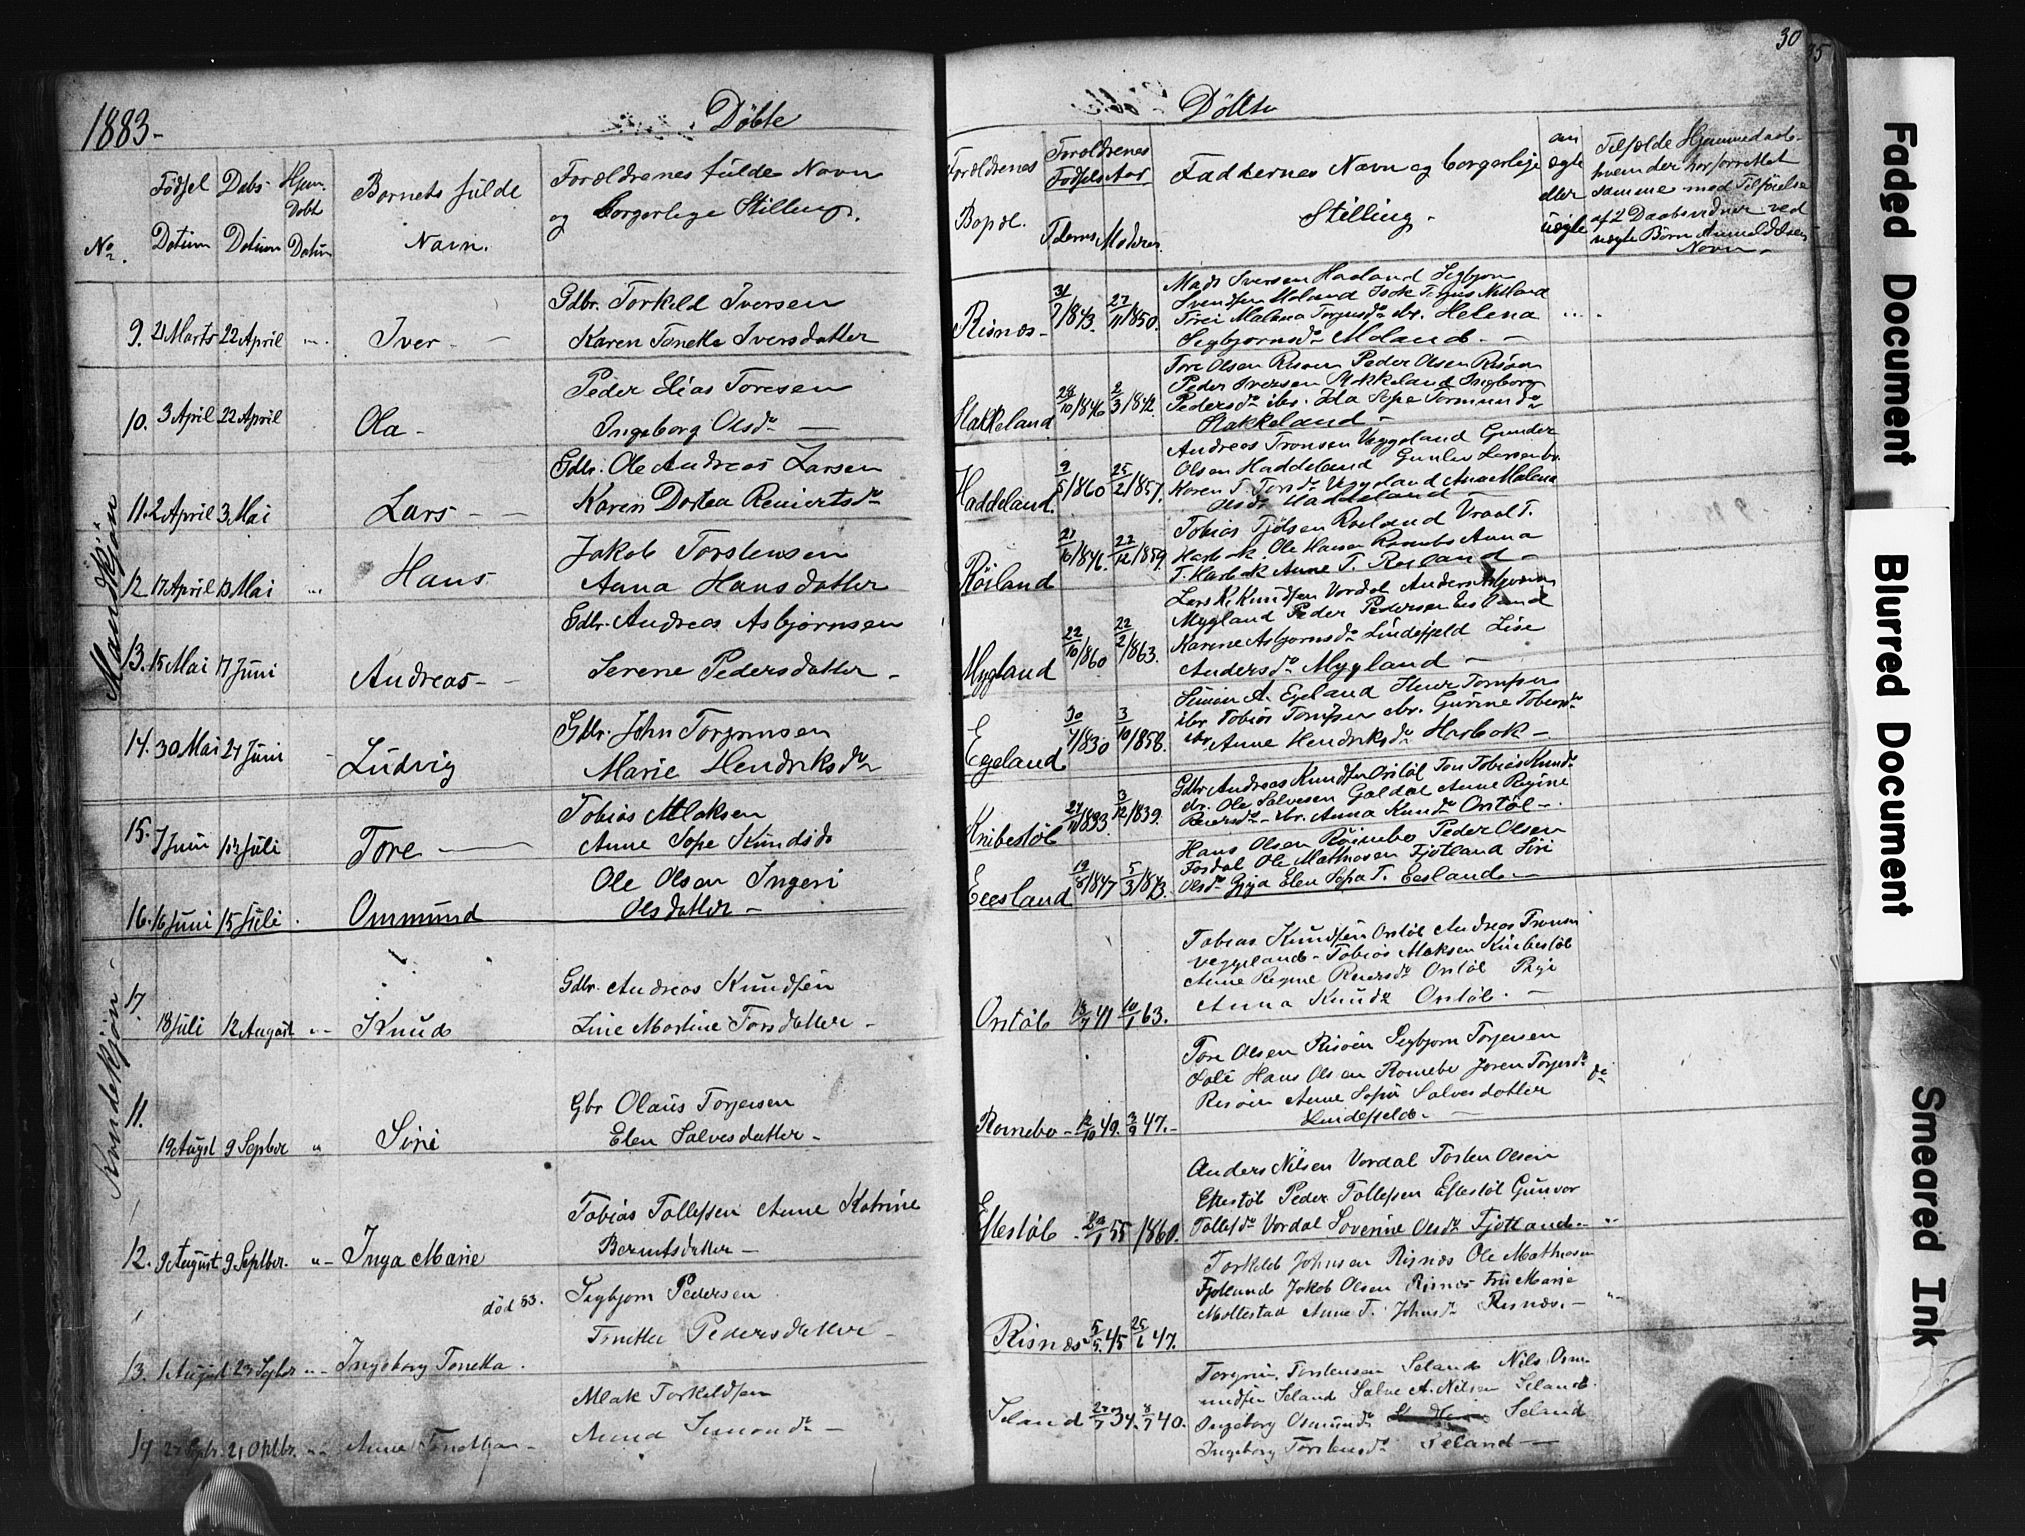 1883.-
Döbte
No.
Födsel Datum
Dabs Datum
Hjem. Dobt Datum
Barnets fulde Navn.
Forældrenes fulde Navn
og borgerlige Stilling.
Mandkjön
9. 21 Marts 22 April Iver
Gdbr. Torkild Iversen
Karen Tonette Iversdatter
10. 3 April 22 April Ola -
Peder Elias Toresen
Ingeborg Olsdr
11. 2 April 3 Mai Lars -
Gdbr. Ole Andreas Larsen
Karen Dortea Reiertsdr
12 17 April 13 Mai Hans
Jakob Torstensen
Anna Hansdatter
13. 15 Mai 17 Juni Andreas -
Gdbr. Andreas Asbjørnsen
Serene Pedersdatter -
14. 30 Mai 24 Juni Ludvig
Gdbr. John Torgrimsen
Marie Hendriksdr
15. 7 Juni Juli Tore
Tobias Aslaksen
Anne Sofie Knudsd
16. 16 Juni 15 Juli. Ommund
Ole Olsen Ingeri
Olsdatter -
17. 18 Juli 12 August Knud
Gdbr. Andreas Knudsen
Line Martine Torsdatter -
Kvindekjön -
11. 19 Augst 9 Septber " Siri
Gbr Olaus Torjersen
Elen Salvesdatter -
12. 9 August 9 Septber. " - Inga Marie
Tobias Tollefsen Anne Katrine
Berntsdatter -
død 83.
13. 1 August 23 Septbr Ingeborg Tonetta.
Sigbjorn Pedersen
Pedersdatter -
14 21 Oktbr. Anne
Aslak Torkildsen
Anna Simonsdr -
30
35
Döbte
Forældrenes Bopæl.
Forældrenes Fodsels Aar
Faderens Moderens
Faddernes Navn og borgerlige
Stilling.
om ægte eller uægte
Tilfælde Hjemmedaab
hvem der har forrettet
samme med Tilföielse
af 2 Daabsvidner ved
uægte Börn Anmelderens
Navn.
Risnes - 31/7 1843. 27/11 1850.
Mads Iversen Haaland Sigbjorn
Svendsen Moland
Malena Torjusdr ibr. Helena
Sigbjornsdr Moland -
Stakkeland 28/10 1840 2/3 1842.
Tore Olsen Risoen Peder Olsen Risoen
Peder Iversen Stakkeland Ingeborg
Pedersdr ibr. Ida Sofie Tormundsdr
Stakkeland -
Haddeland. 9/5 1860 25/2 1857.
Andreas Tronsen Veggeland Gunder
Olsen Haddeland Gunder Larsen
Karen T. Torsdr Veggeland Ana Malena
Olsdr Haddeland
Röiland 21/10 1846. 27/12 1859.
Tobias Tjölsen Roiland
Harbok. Ole Hansen Romebo Anna
T. Harbok Anne T. Roiland -
Mygland 22/10 1860 22/2 1863.
Lars K. Knudsen Vordal Anders Asbjornsen
Mygland Peder Pedersen
Karene Asbjornsdr Lindefjeld Lise
Andersdr Mygland -
Egeland 30/7 1830 3/10 1858.
Simon A. Egeland
ibr Tobias Tomsen ibr. Gurine Tobiasdr
ibr. Anne Hendriksdr Harbok -
Knibestöl 27/11 1833. 3/12 1839.
Gdbr Andreas Knudsen Orstöl Ton Tobias Knudsen
ibr. Ole Salvesen Galdal Anne Regine
Reiersdr - ibr. Anna Knudsdr Orstöl -.
Eeesland 19/8 1847 5/3 1843.
Hans Olsen Röinebo Peder Olsen
Fosdal Ole Mathiesen Fjotland Siri
Olsdr Gyja Elen Sofia T. Eesland -
Orstöl 18/7 41 10/1 63.
Tobias Knudsen Orstöl Andreas Tronsen
Veggeland - Tobias Aslaksen Knibestöl
Anne Regine Reiersdr Orstöl Pige
Anna Knudsdr Orstöl. -
Romebo - 12/10 49. 3/9 47. -
Tore Olsen Risoen Sigbjorn Torjersen
Hans Olsen Romebo Joren Torjersdr
Risoen Anne Sofie Salvesdatter
Lindefjeld. -
Eftestöl 55 1860.
Anders Nilsen Vordal Torsten Olsen
Eftestöl Peder Tollefsen Eftestöl Gunvor
Tollefsdr Vordal Soverine Olsdr Fjotland -
Risnes 5/5 45 25/6 47.
Torkild Johnsen Risnes Ole Mathiesen
Fjotland Jakob Olsen Risnes Marie
Mollestad Anne T. Johnsdr Risnes. -
Seland 27/7 34. 8/7 40.
Torgrim Torstensen Seland Nils Osmundsen
Seland Salve A. Nilsen Seland.
Ingeborg Osmundsdr Seland
Ingeborg Torstensdr Seland -
Faded Document
Blurred Document
Smeared Ink